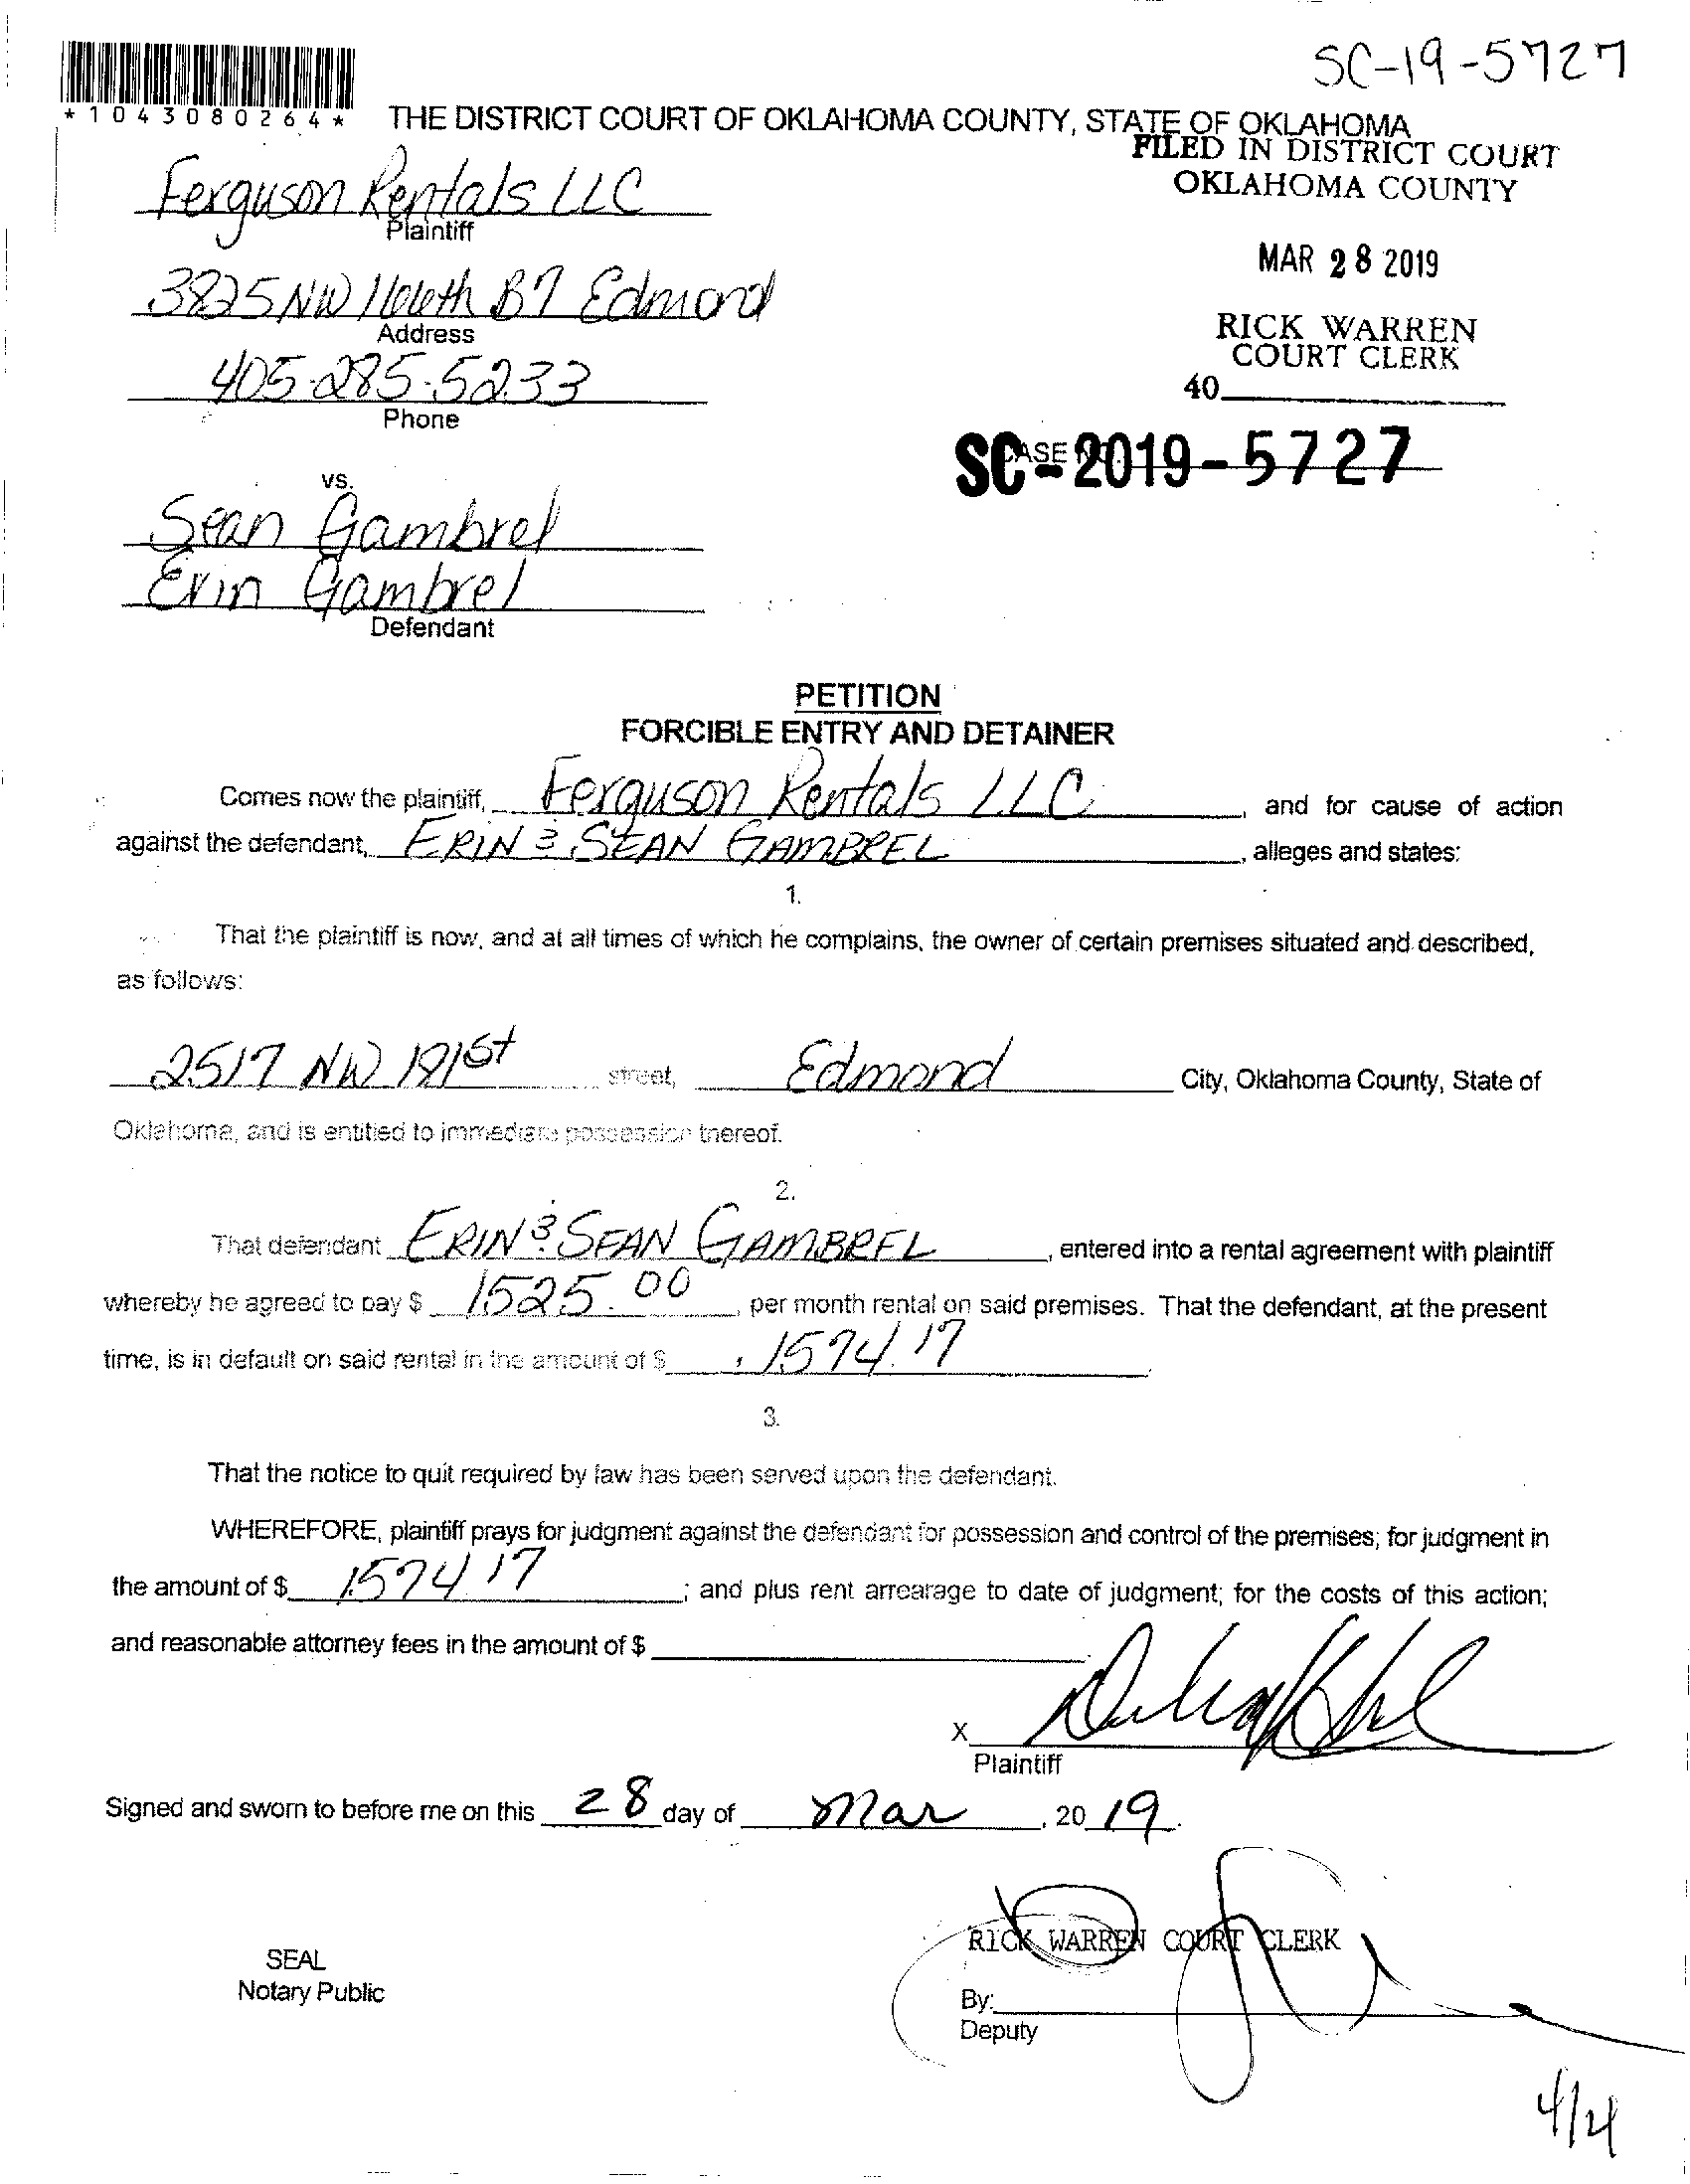 SC-19-5727
*1043080264*
THE DISTRICT COURT OF OKLAHOMA COUNTY, STATE OF OKLAHOMA
FILED IN DISTRICT COURT
OKLAHOMA COUNTY
Ferguson Rentals LLC
Plaintiff
MAR 28 2019
3825 NW 166th B7 Edmond
Address
RICK WARREN
COURT CLERK
405-285-5233
Phone
40
CASE NO.
SC-2019-5727
vs.
Sean Gambrel
Erin Gambrel
Defendant
PETITION
FORCIBLE ENTRY AND DETAINER
Comes now the plaintiff, Ferguson Rentals LLC, and for cause of action
against the defendant, ERIN & SEAN GAMBREL, alleges and states:
1.
That the plaintiff is now, and at all times of which he complains, the owner of certain premises situated and described,
as follows:
2517 NW 181st street, Edmond City, Oklahoma County, State of
Oklahoma, and is entitled to immediate possession thereof.
2.
That defendant ERIN & SEAN GAMBREL, entered into a rental agreement with plaintiff
whereby he agreed to pay $ 1525.00, per month rental on said premises. That the defendant, at the present
time, is in default on said rental in the amount of $ 1574.17
3.
That the notice to quit required by law has been served upon the defendant.
WHEREFORE, plaintiff prays for judgment against the defendant for possession and control of the premises; for judgment in
the amount of $ 1574.17; and plus rent arrearage to date of judgment; for the costs of this action;
and reasonable attorney fees in the amount of $
X
Plaintiff
Signed and sworn to before me on this 28 day of Mar, 20 19.
RICK WARREN COURT CLERK
SEAL
Notary Public
By:
Deputy
4/4